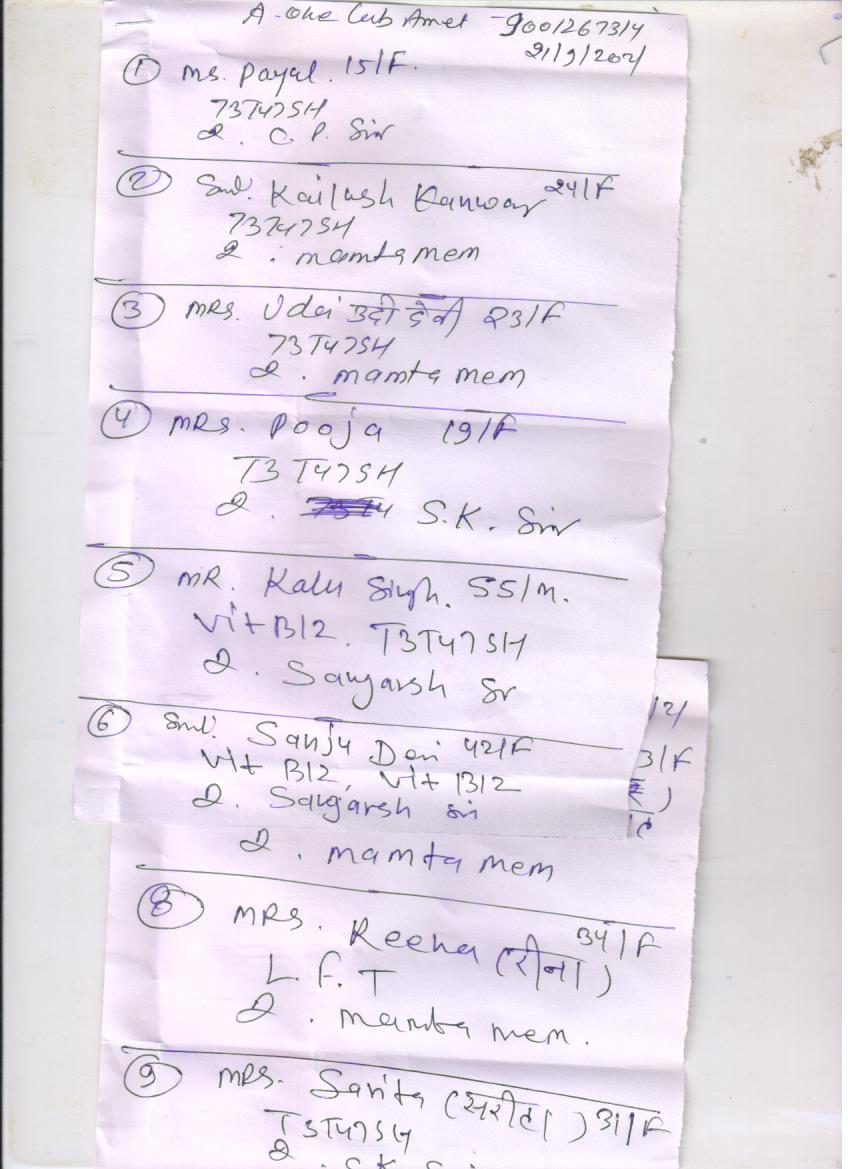 A-one Lab Amet 9001267314
21/9/2021
① Ms. Payal. 15/F.
T3T4TSH
2. C. P. Sir
② Smt. Kailash Kanwar 24/F
T3T4TSH
2. mamta mem
③ MRS. Udai उदी देवी 23/F
T3T4TSH
2. mamta mem
④ MRS. Pooja 19/F
T3 T4TSH
2. S.K. Sir
⑤ MR. Kalu Singh. 55/M.
Vit B12. T3T4TSH
2. Sangarsh Sr
⑥ Smt. Sanju Devi 42/F
Vit B12, Vit B12
2. Sangarsh sir
/21
3/F
2. mamta mem
⑧ MRS. Reena (रीना) 34/F
L.F.T
2. mamta mem.
⑨ MRS. Sarita (सरीता) 31/F
T3T4TSH
2. S.K. Sir